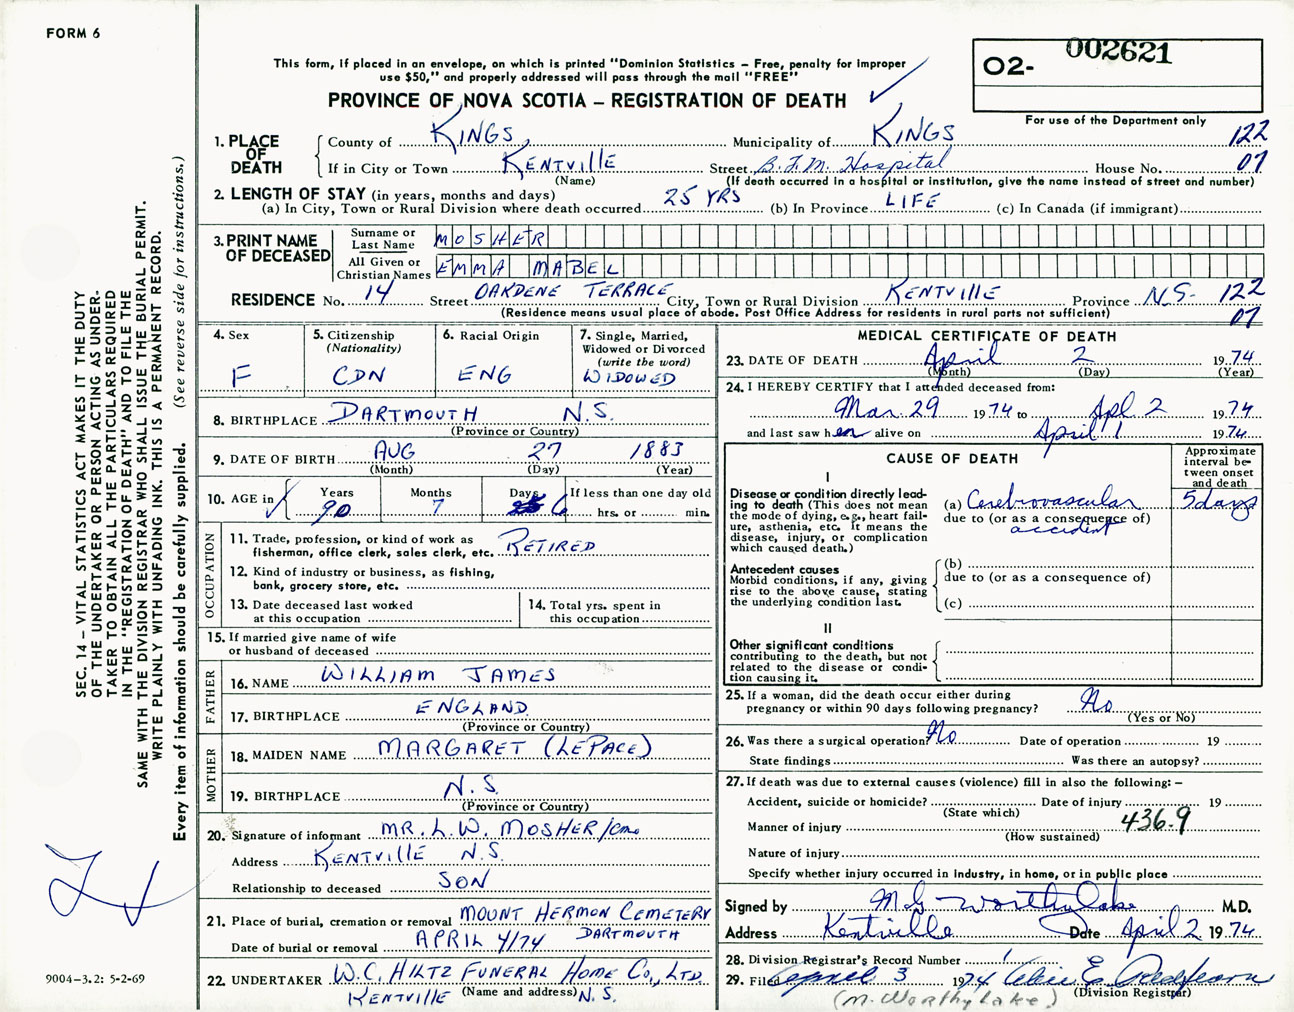 FORM 6
002621
O2-
For use of the Department only
This form, if placed in an envelope, on which is printed "Dominion Statistics – Free, penalty for improper
use $50," and properly addressed will pass through the mail "FREE"
PROVINCE OF NOVA SCOTIA – REGISTRATION OF DEATH
1. PLACE OF DEATH
County of KINGS Municipality of KINGS 122
If in City or Town KENTVILLE Street B.F.M. Hospital House No. 07
(Name) (If death occurred in a hospital or institution, give the name instead of street and number)
2. LENGTH OF STAY (in years, months and days)
(a) In City, Town or Rural Division where death occurred 25 YRS (b) In Province LIFE (c) In Canada (if immigrant)
3. PRINT NAME OF DECEASED
Surname or Last Name MOSHER
All Given or Christian Names EMMA MABEL
RESIDENCE No. 14 Street OAKDENE TERRACE City, Town or Rural Division KENTVILLE Province N.S. 122
(Residence means usual place of abode. Post Office Address for residents in rural parts not sufficient) 07
4. Sex
F
5. Citizenship
(Nationality)
CDN
6. Racial Origin
ENG
7. Single, Married,
Widowed or Divorced
(write the word)
WIDOWED
8. BIRTHPLACE DARTMOUTH N.S.
(Province or Country)
9. DATE OF BIRTH AUG 27 1883
(Month) (Day) (Year)
10. AGE in Years Months Days If less than one day old
90 7 6 hrs. or min.
OCCUPATION
11. Trade, profession, or kind of work as
fisherman, office clerk, sales clerk, etc. RETIRED
12. Kind of industry or business, as fishing,
bank, grocery store, etc.
13. Date deceased last worked
at this occupation
14. Total yrs. spent in
this occupation
15. If married give name of wife
or husband of deceased
FATHER
16. NAME WILLIAM JAMES
17. BIRTHPLACE ENGLAND
(Province or Country)
MOTHER
18. MAIDEN NAME MARGARET (LEPACE)
19. BIRTHPLACE N.S.
(Province or Country)
20. Signature of informant MR. L.W. MOSHER/cm
Address KENTVILLE N.S.
Relationship to deceased SON
21. Place of burial, cremation or removal MOUNT HERMON CEMETERY
DARTMOUTH
Date of burial or removal APRIL 4/74
22. UNDERTAKER W.C. HILTZ FUNERAL HOME CO., LTD.
KENTVILLE (Name and address) N.S.
MEDICAL CERTIFICATE OF DEATH
23. DATE OF DEATH April 2 1974
(Month) (Day) (Year)
24. I HEREBY CERTIFY that I attended deceased from:
Mar. 29 1974 to Apl 2 1974
and last saw her alive on April 1 1974
CAUSE OF DEATH
Approximate
interval be-
tween onset
and death
I
Disease or condition directly lead-
ing to death (This does not mean
the mode of dying, e.g., heart fail-
ure, asthenia, etc. It means the
disease, injury, or complication
which caused death.)
(a) Cerebrovascular 5 days
due to (or as a consequence of)
accident
Antecedent causes
Morbid conditions, if any, giving
rise to the above cause, stating
the underlying condition last.
(b)
due to (or as a consequence of)
(c)
II
Other significant conditions
contributing to the death, but not
related to the disease or condi-
tion causing it.
25. If a woman, did the death occur either during
pregnancy or within 90 days following pregnancy? No
(Yes or No)
26. Was there a surgical operation? No Date of operation 19
State findings Was there an autopsy?
27. If death was due to external causes (violence) fill in also the following: –
Accident, suicide or homicide? Date of injury 19
(State which)
436.9
Manner of injury
(How sustained)
Nature of injury
Specify whether injury occurred in Industry, in home, or in public place
Signed by M G Worthylake M.D.
Address Kentville Date April 2 1974
28. Division Registrar's Record Number
29. Filed April 3 1974
(Division Registrar)
(M. Worthylake)
SEC. 14 – VITAL STATISTICS ACT MAKES IT THE DUTY
OF THE UNDERTAKER OR PERSON ACTING AS UNDER-
TAKER TO OBTAIN ALL THE PARTICULARS REQUIRED
IN THE "REGISTRATION OF DEATH" AND TO FILE THE
SAME WITH THE DIVISION REGISTRAR WHO SHALL ISSUE THE BURIAL PERMIT.
WRITE PLAINLY WITH UNFADING INK. THIS IS A PERMANENT RECORD.
Every item of information should be carefully supplied. (See reverse side for instructions.)
9004–3.2: 5-2-69